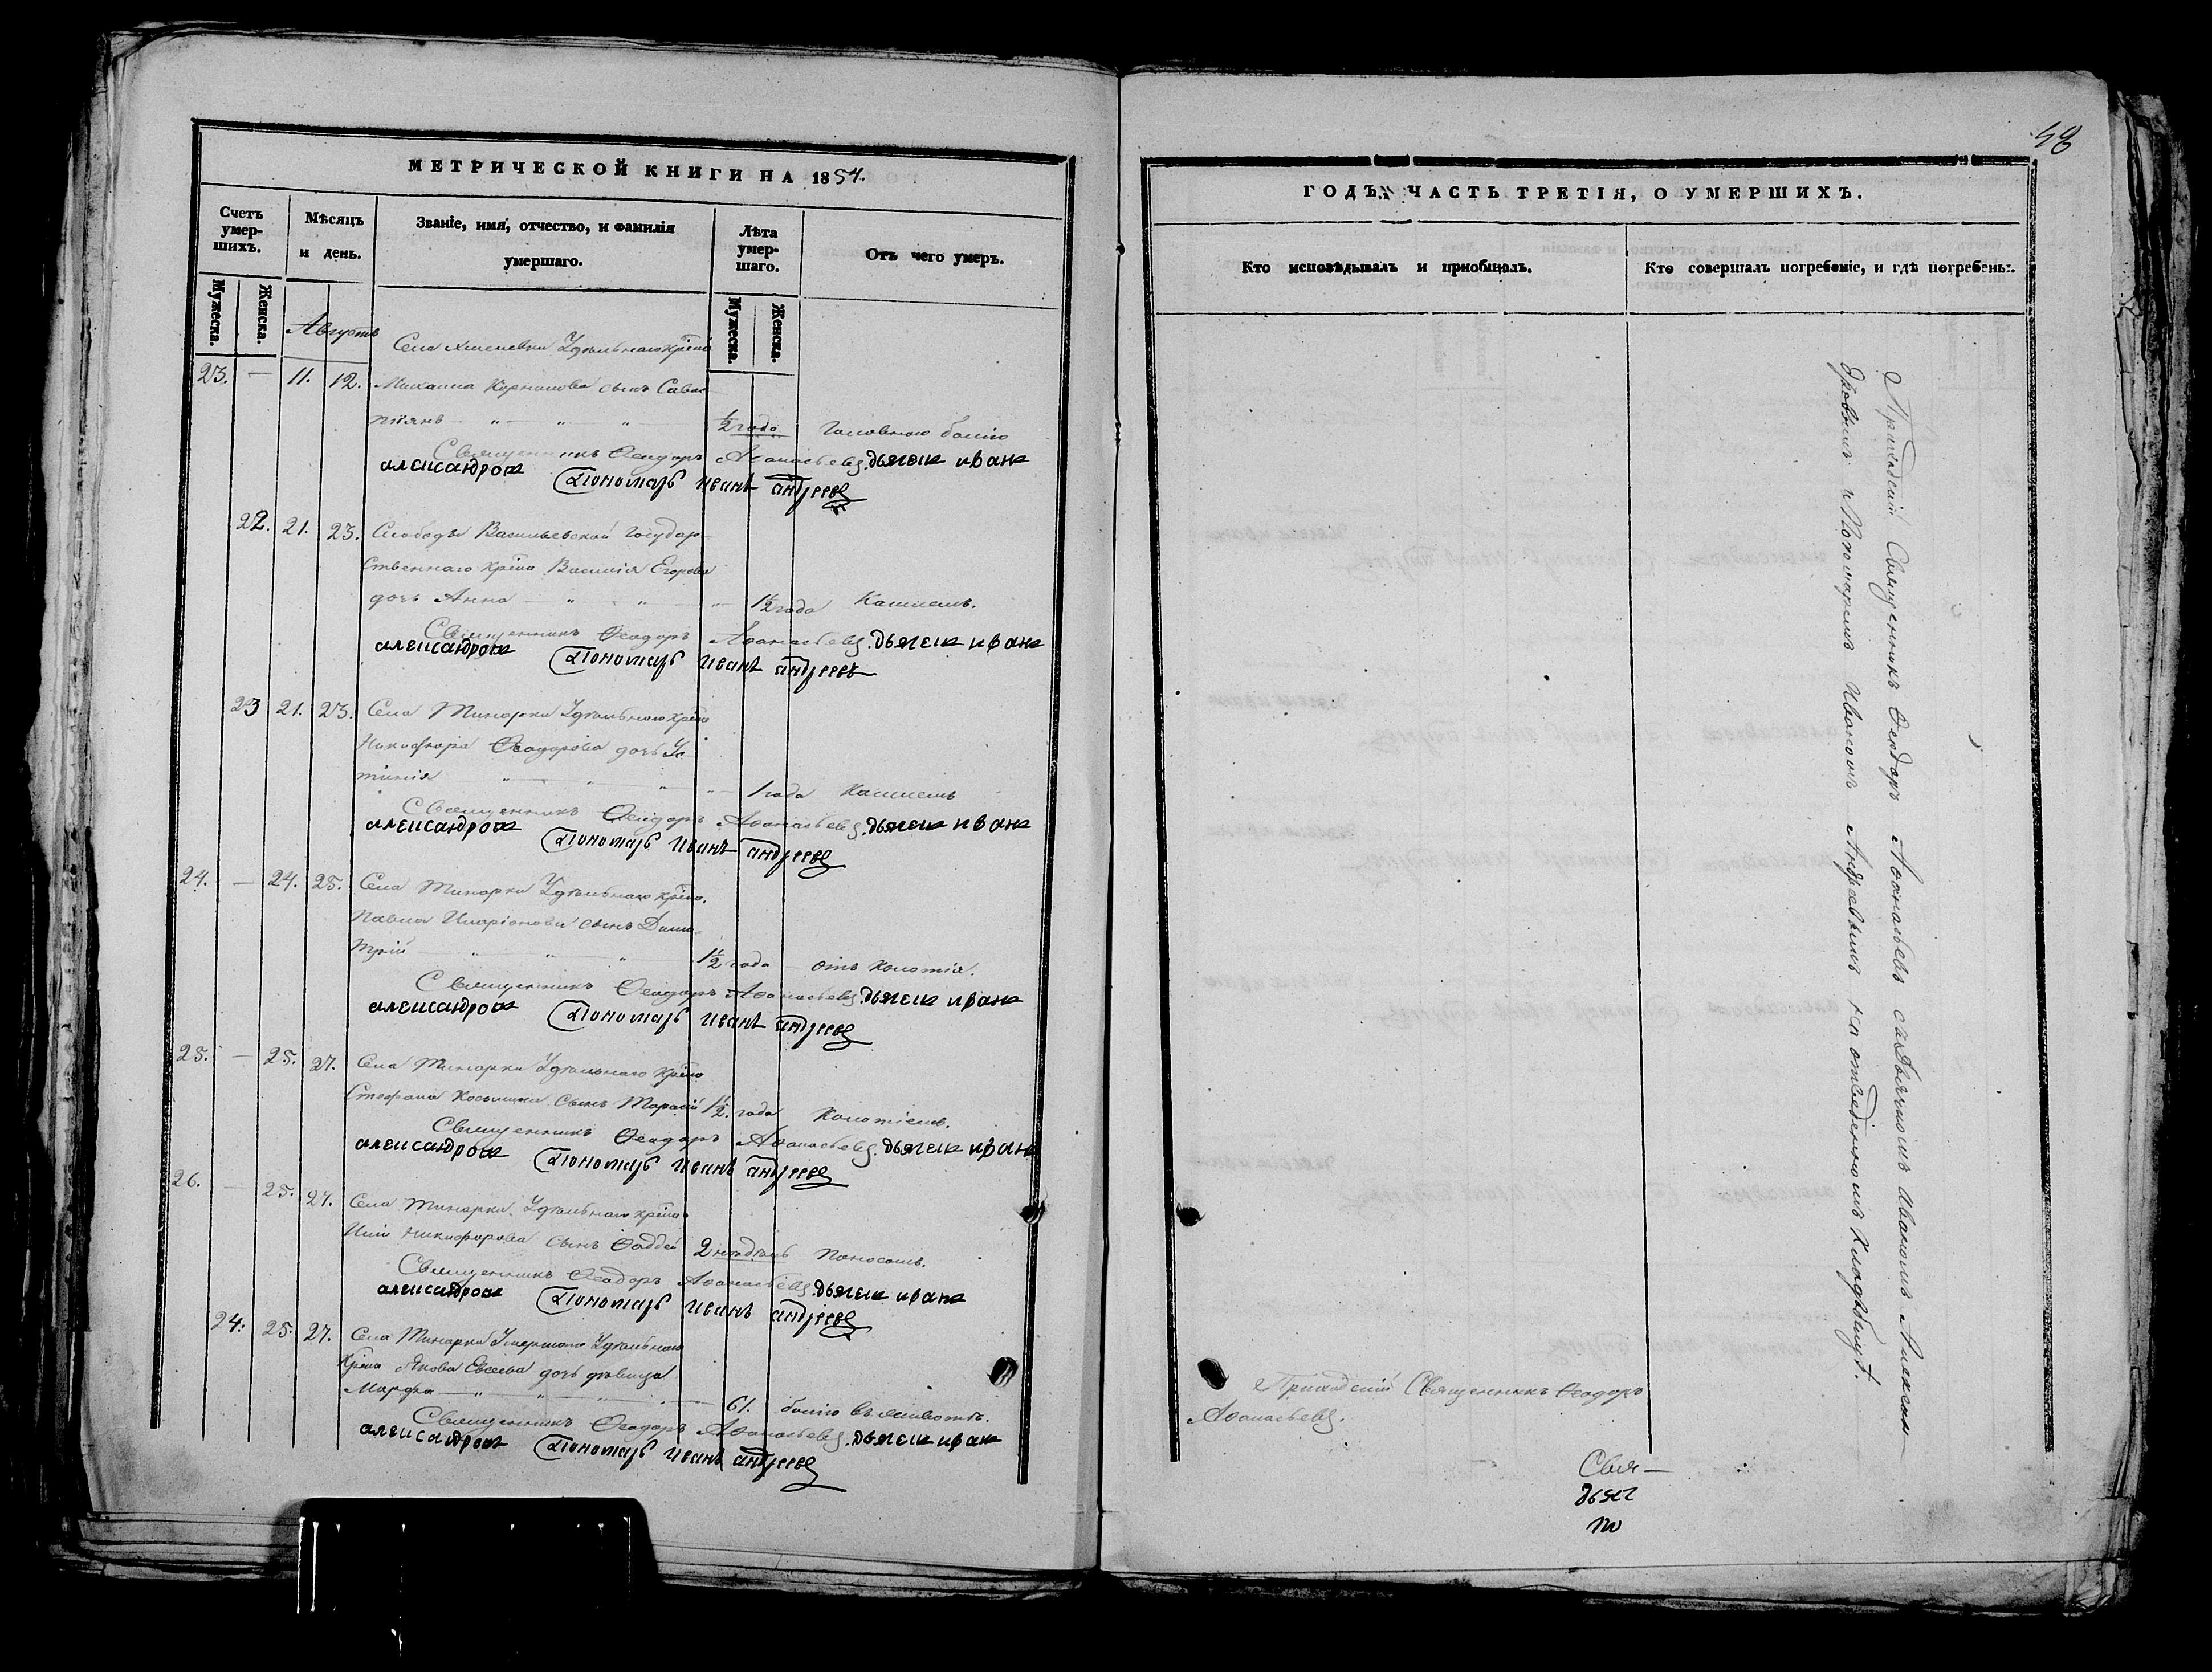 МЕТРИЧЕСКОЙ КНИГИ НА 1854.
Счетъ умер-шихъ.
Мужеска.
Женска.
Мѣсяцъ и день.
Званіе, имя, отчество, и фамилія умершаго.
Лѣта умер-шаго.
Мужеска.
Женска.
Отъ чего умеръ.
Августъ
Села Удѣльнаго крѣна
23. — 11. 12. Михаила Корнилова сынъ Савас-
тіянъ — „ — „ — „ ½ года Головною болію
Священникъ Ѳеодоръ Аѳанасьевъ. дьячекъ иванъ
александровъ Пономарь иванъ андреевъ
22. 21. 23. Слободы Васильевской Государ-
ственнаго крѣна Василія Егорова
дочь Анна — „ — „ — „ 1½ года Кашлемъ.
Священникъ Ѳеодоръ Аѳанасьевъ. дьячекъ иванъ
александровъ Пономарь иванъ андреевъ
23 21. 23. Села Тинарки Удѣльнаго крѣна
Никифора Ѳеодорова дочь Ус-
тинія „ — „ — „ — „ 1 года Кашлемъ
Священникъ Ѳеодоръ Аѳанасьевъ. дьячекъ иванъ
александровъ Пономарь иванъ андреевъ
24. — 24. 25. Села Тинарки Удѣльнаго крѣна.
Павла Иларіонова сынъ Дими-
трій — „ — „ — „ 1½ года отъ колотія.
Священникъ Ѳеодоръ Аѳанасьевъ. дьячекъ иванъ
александровъ Пономарь иванъ андреевъ
25. — 25. 27. Села Тинарки Удѣльнаго крѣна
Стефана Косьмина сынъ Тарасій 1½ года Колотіемъ.
Священникъ Ѳеодоръ Аѳанасьевъ. дьячекъ иванъ
александровъ Пономарь иванъ андреевъ
26. — 25. 27. Села Тинарки Удѣльнаго крѣна
Иліи Никифорова сынъ Ѳаддей 2 недѣль Поносомъ.
Священникъ Ѳеодоръ Аѳанасьевъ. дьячекъ иванъ
александровъ Пономарь иванъ андреевъ
24. 25. 27. Села Тинарки Умершаго Удѣльнаго
крѣна Якова Евсеева дочь дѣвица
Марфа — „ — „ — „ — 61. болію въ животѣ.
Священникъ Ѳеодоръ Аѳанасьевъ. дьячекъ иванъ
александровъ Пономарь иванъ андреевъ
ГОДЪ, ЧАСТЬ ТРЕТІЯ, О УМЕРШИХЪ.
Кто исповѣдывалъ и пріобщалъ.
Кто совершалъ погребеніе, и гдѣ погребены.
Приходскій Священникъ Ѳеодоръ Аѳанасьевъ съ Дьячкомъ Иваномъ Алексан-
дровымъ и Пономаремъ Иваномъ Андреевымъ на отведенномъ Кладбищѣ.
Приходскій Священникъ Ѳеодоръ
Аѳанасьевъ.
Свя—
дьяч
по